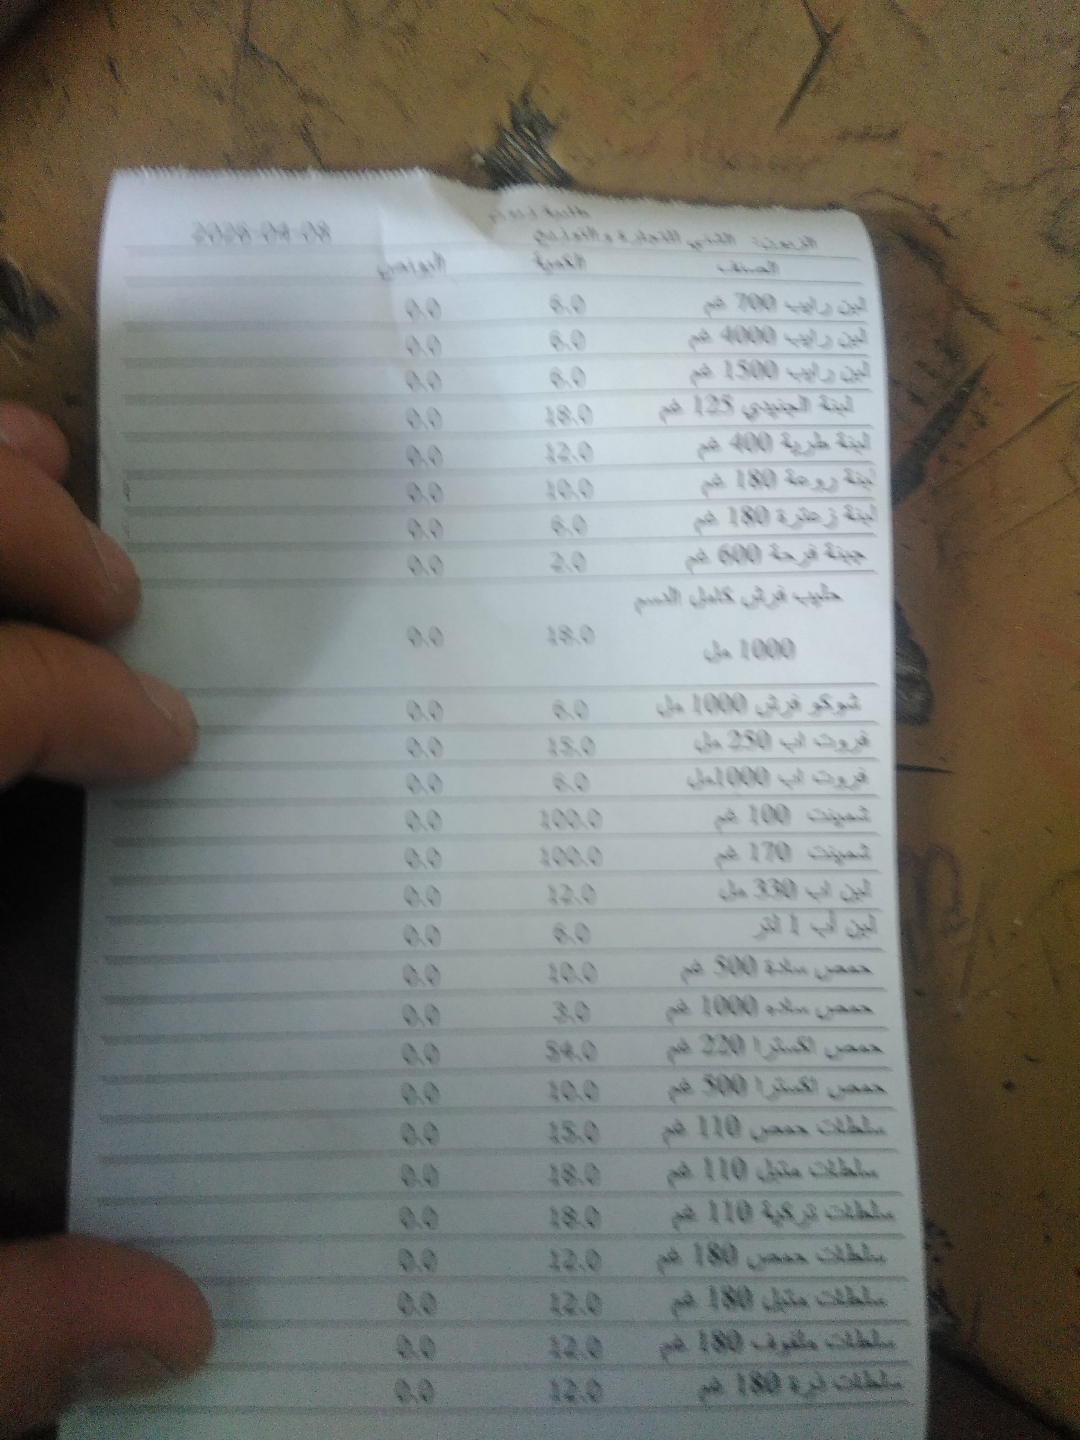 طلبية زبون
الزبون: التقني للتجارة والتوزيع 2026-04-08
الصنف الكمية البونص
لبن رايب 700 غم 6.0 0.0
لبن رايب 4000 غم 6.0 0.0
لبن رايب 1500 غم 6.0 0.0
لبنة الجنيدي 125 غم 18.0 0.0
لبنة طرية 400 غم 12.0 0.0
لبنة روعة 180 غم 10.0 0.0
لبنة زعترة 180 غم 6.0 0.0
جبنة فرحة 600 غم 2.0 0.0
حليب فرش كامل الدسم
1000 مل 18.0 0.0
شوكو فرش 1000 مل 6.0 0.0
فروت اب 250 مل 15.0 0.0
فروت اب 1000مل 6.0 0.0
شمينت 100 غم 100.0 0.0
شمينت 170 غم 100.0 0.0
لبن اب 330 مل 12.0 0.0
لبن أب 1 لتر 6.0 0.0
حمص سادة 500 غم 10.0 0.0
حمص ساده 1000 غم 3.0 0.0
حمص اكسترا 220 غم 54.0 0.0
حمص اكسترا 500 غم 10.0 0.0
سلطات حمص 110 غم 15.0 0.0
سلطات متبل 110 غم 18.0 0.0
سلطات تركية 110 غم 18.0 0.0
سلطات حمص 180 غم 12.0 0.0
سلطات متبل 180 غم 12.0 0.0
سلطات ملفوف 180 غم 12.0 0.0
سلطات ذرة 180 غم 12.0 0.0